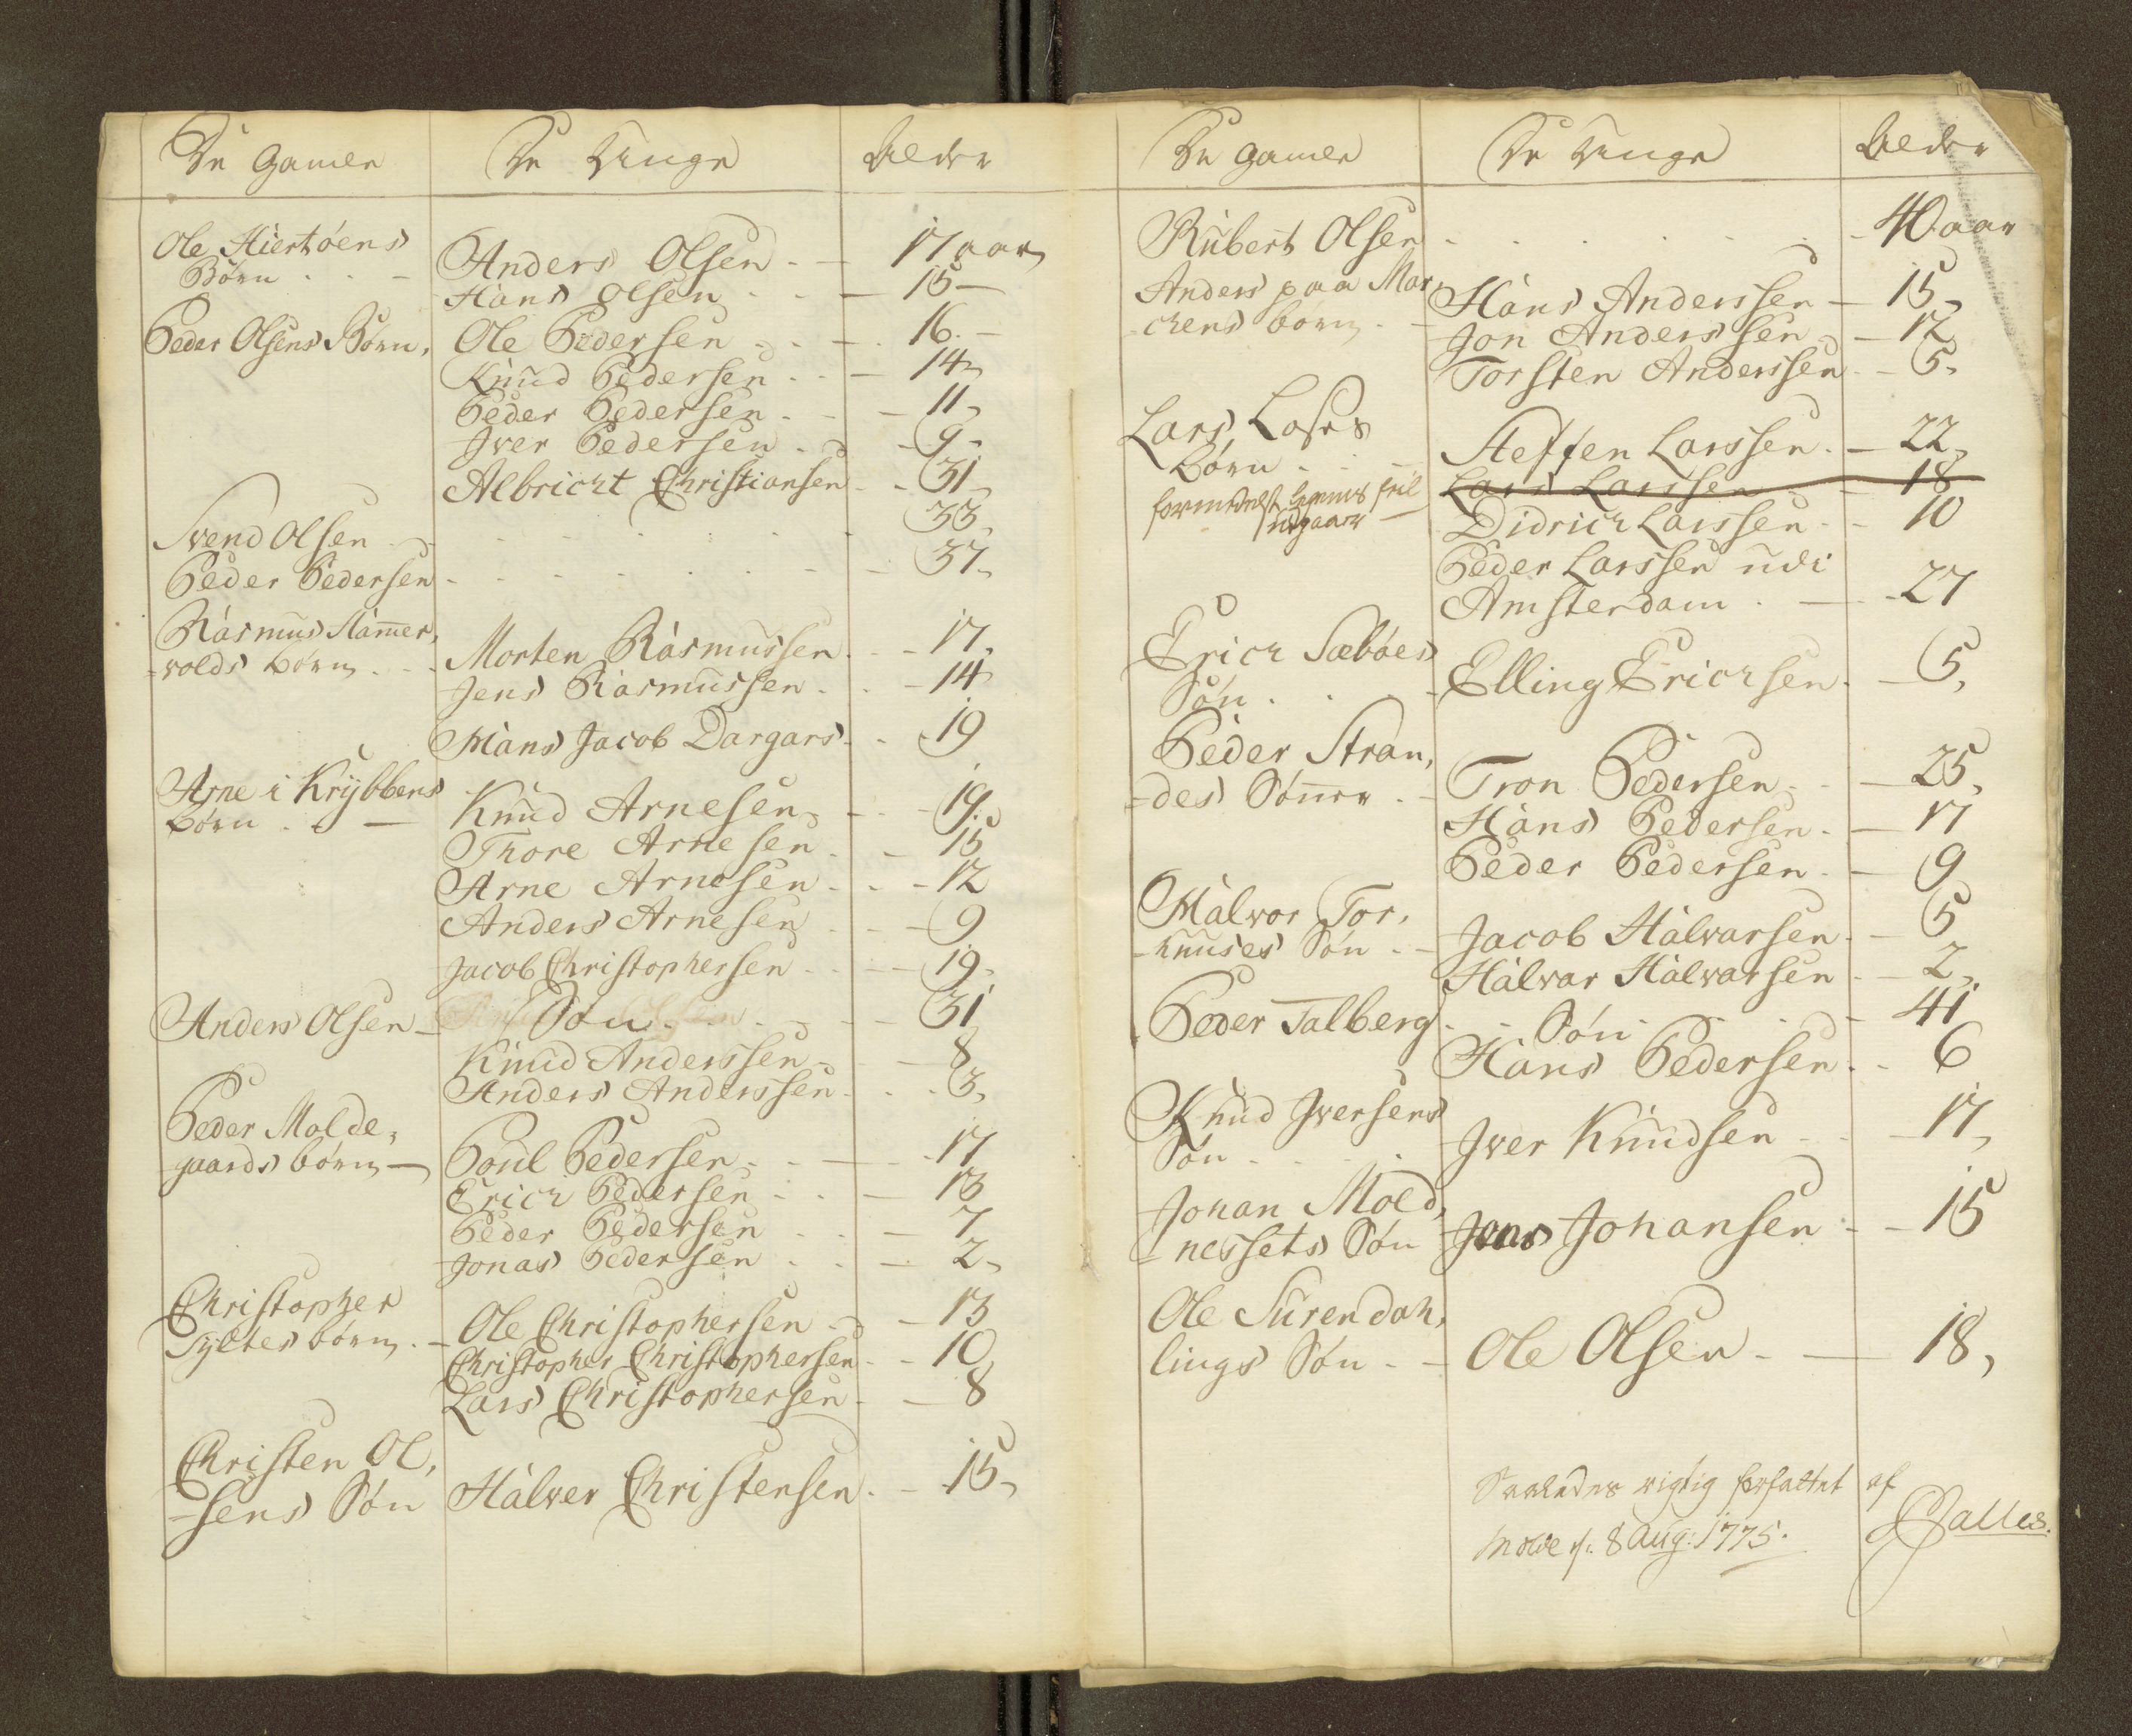 De Gamle De Unge Alder
Ole Hiertøens Anders Olsen 17 aar
Børn Hans Olsen 15
Peder Olsens Børn, Ole Pedersen 16
Knud Pedersen 14
Peder Pedersen 11
Iver Pedersen 9
Albricht Christiansen 31
Svend Olsen 33
Peder Pedersen 37
Rasmus Hamer,
-volds børn Morten Rasmussen 17
Jens Rasmussen 14
Hans Jacob Dargars 19
Arne i Krybbens Knud Arnesen 19
Børn Thore Arnesen 15
Arne Arnesen 12
Anders Arnesen 9
Jacob Christophersen 19
Anders Olsen Søn 31
Knud Anderssen 8
Anders Anderssen 3
Peder Molde,
-gaards børn Poul Pedersen 17
Erich Pedersen 13
Peder Pedersen 7
Jonas Pedersen 2
Christopher Ole Christophersen 13
Syltes børn Christopher Christophersen 10
Lars Christophersen 8
Christen Ol,
-sens Søn Halver Christensen 15
De Gamle De Unge Alder
Rubert Olsen 40 aar
Anders paa Mar, Hans Anderssen 15
-chens børn Jon Anderssen 12
Torsten Anderssen 5
Lars Loses Steffen Larssen 22
Børn Lars Larssen 18
formedelst feil
udgaaer Didrich Larssen 10
Peder Larssen udi
Amsterdam 27
Erich Sæbøes
Søn Elling Erichsen 5
Peder Stran,
-des Sønner Tron Pedersen 25
Hans Pedersen 17
Peder Pedersen 9
Halvor Tor,
-huuses Søn Jacob Halvarsen 5
Halvar Halvarsen 2
Peder Talberg Søn 41
Hans Pedersen 6
Knud Iversens
Søn Iver Knudsen 17
Johan Mold,
-nessets Søn Jens Johansen 15
Ole Surendah,
lings Søn Ole Olsen 18
Saaledes rigtig forfattet af
Molde d. 8 Aug: 1775.